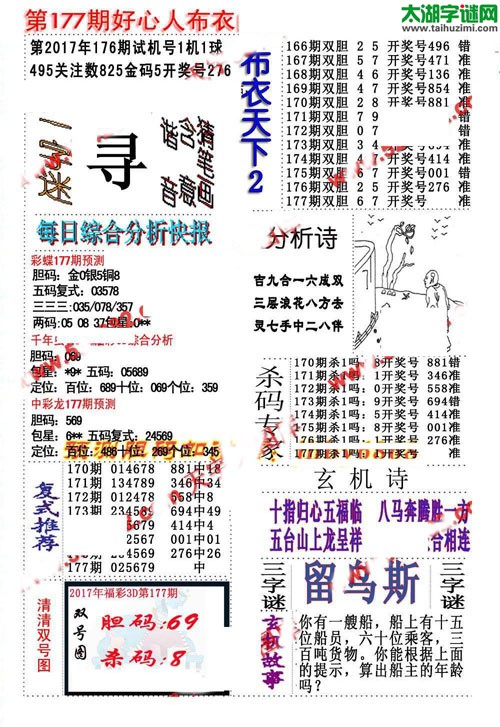 第177期好心人布衣
太湖字谜网
www.taihuzimi.com
第2017年176期试机号1机1球
495关注数825金码5开奖号276
一字迷
寻
猜笔画
含意
谐音
每日综合分析快报
彩蝶177期预测
胆码：金0银5铜8
五码复式：03578
三三三:035/078/357
两码:05 08 37包星:0**
千年
综合分析
胆码：069
包星：*9* 五码：05689
定位：百位：689十位：069个位：359
中彩龙177期预测
胆码：569
包星：6** 五码复式：24569
定位：百位：486十位：269个位：345
复式推荐
170期 014678 881中18
171期 012346 346中34
172期 012468 558中
173期 234589 694中49
5679 414中
2567 001中01
4569 276中26
177期 025679 中
清清双号图
2017年福彩3D第177期
双号图
胆码:69
杀码:8
布衣天下2
166期双胆 2 5 开奖号496 错
167期双胆 5 7 开奖号471 准
168期双胆 4 6 开奖号136 准
169期双胆 4 7 开奖号854 准
170期双胆 2 8 开奖号881 准
171期双胆 7 9
172期双胆 0 7
173期双胆 3 4
174期双胆 4 7 开奖号414 准
175期双胆 6 7 开奖号001 错
176期双胆 2 5 开奖号276 准
177期双胆 6 7 开奖号 准
分析诗
百九合一六成双
三层浪花八方去
灵七手中二八伴
杀码专家
170期杀1吗：8开奖号 881错
171期杀1吗：1开奖号 346准
172期杀1吗：0开奖号 558准
173期杀1吗：9开奖号 694错
174期杀1吗：5开奖号 414准
175期杀1吗：8开奖号 001准
176期杀1吗：0开奖号 276准
177期杀1吗：1开奖号 准
玄机诗
十指归心五福临 八马奔腾胜一方
五台山上龙呈祥 合相连
三字谜
留乌斯
三字谜
玄机故事
你有一艘船，船上有十五
位船员，六十位乘客，三
百吨货物。你能根据上面
的提示，算出船主的年龄
吗？